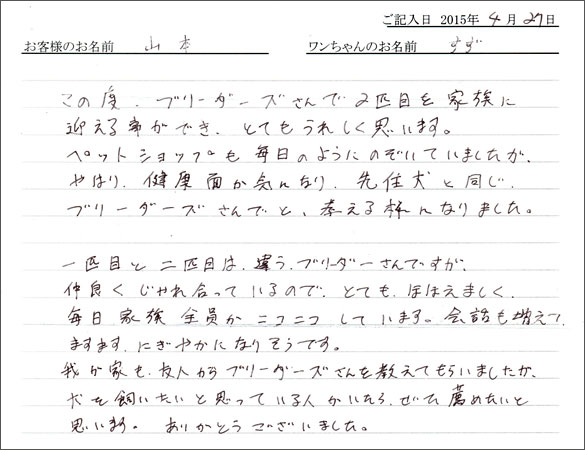 ご記入日 2015年 4月 27日
お客様のお名前 山本 ワンちゃんのお名前 すず
この度、ブリーダーズさんで2匹目を家族に
迎える事ができ、とてもうれしく思います。
ペットショップも毎日のようにのぞいていましたが、
やはり、健康面が気になり、先住犬と同じ、
ブリーダーズさんでと、考える様になりました。
一匹目と二匹目は、違う、ブリーダーさんですが、
仲良くじゃれ合っているので、とても、ほほえましく、
毎日家族全員がニコニコしています。会話も増えて、
ますます、にぎやかになりそうです。
我が家も、友人からブリーダーズさんを教えてもらいましたが、
犬を飼いたいと思っている人がいたら、ぜひ薦めたいと
思います。 ありがとうございました。